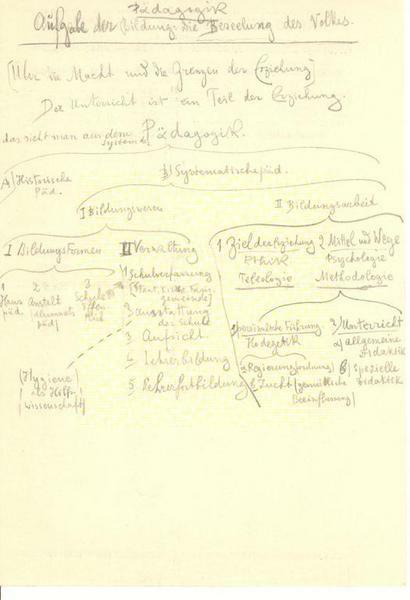 Pädagogik
Aufgabe der Bildung: die Beseelung des Volkes.
[Über die Macht und die Grenzen der Erziehung]
Der Unterricht ist ein Teil der Erziehung.
das sieht man aus dem System d. Pädagogik.
A) Historische Päd.
B) Systematische päd.
I Bildungswesen
II Bildungsarbeit
I Bildungsformen
II Verwaltung
1 Ziel der Erziehung
2 Mittel und Wege
Ethik
Psychologie
Teleologie
Methodologie
1 Haus päd.
2 Anstalt
päd)
3 Schule
1 Schulverfassung
[Staat, Kirche
gemeinde]
2 Ausstattung
der Schule
3 Aufsicht
4 Lehrerbildung
5 Lehrerfortbildung
(Hygiene
als Hilfs
wissenschaft)
Führung
Hodegetik
1 Regierung (Ordnung)
2 Zucht (gemütliche
Beeinflussung)
3) Unterricht
α) allgemeine
Didaktik
β) spezielle
Didaktik